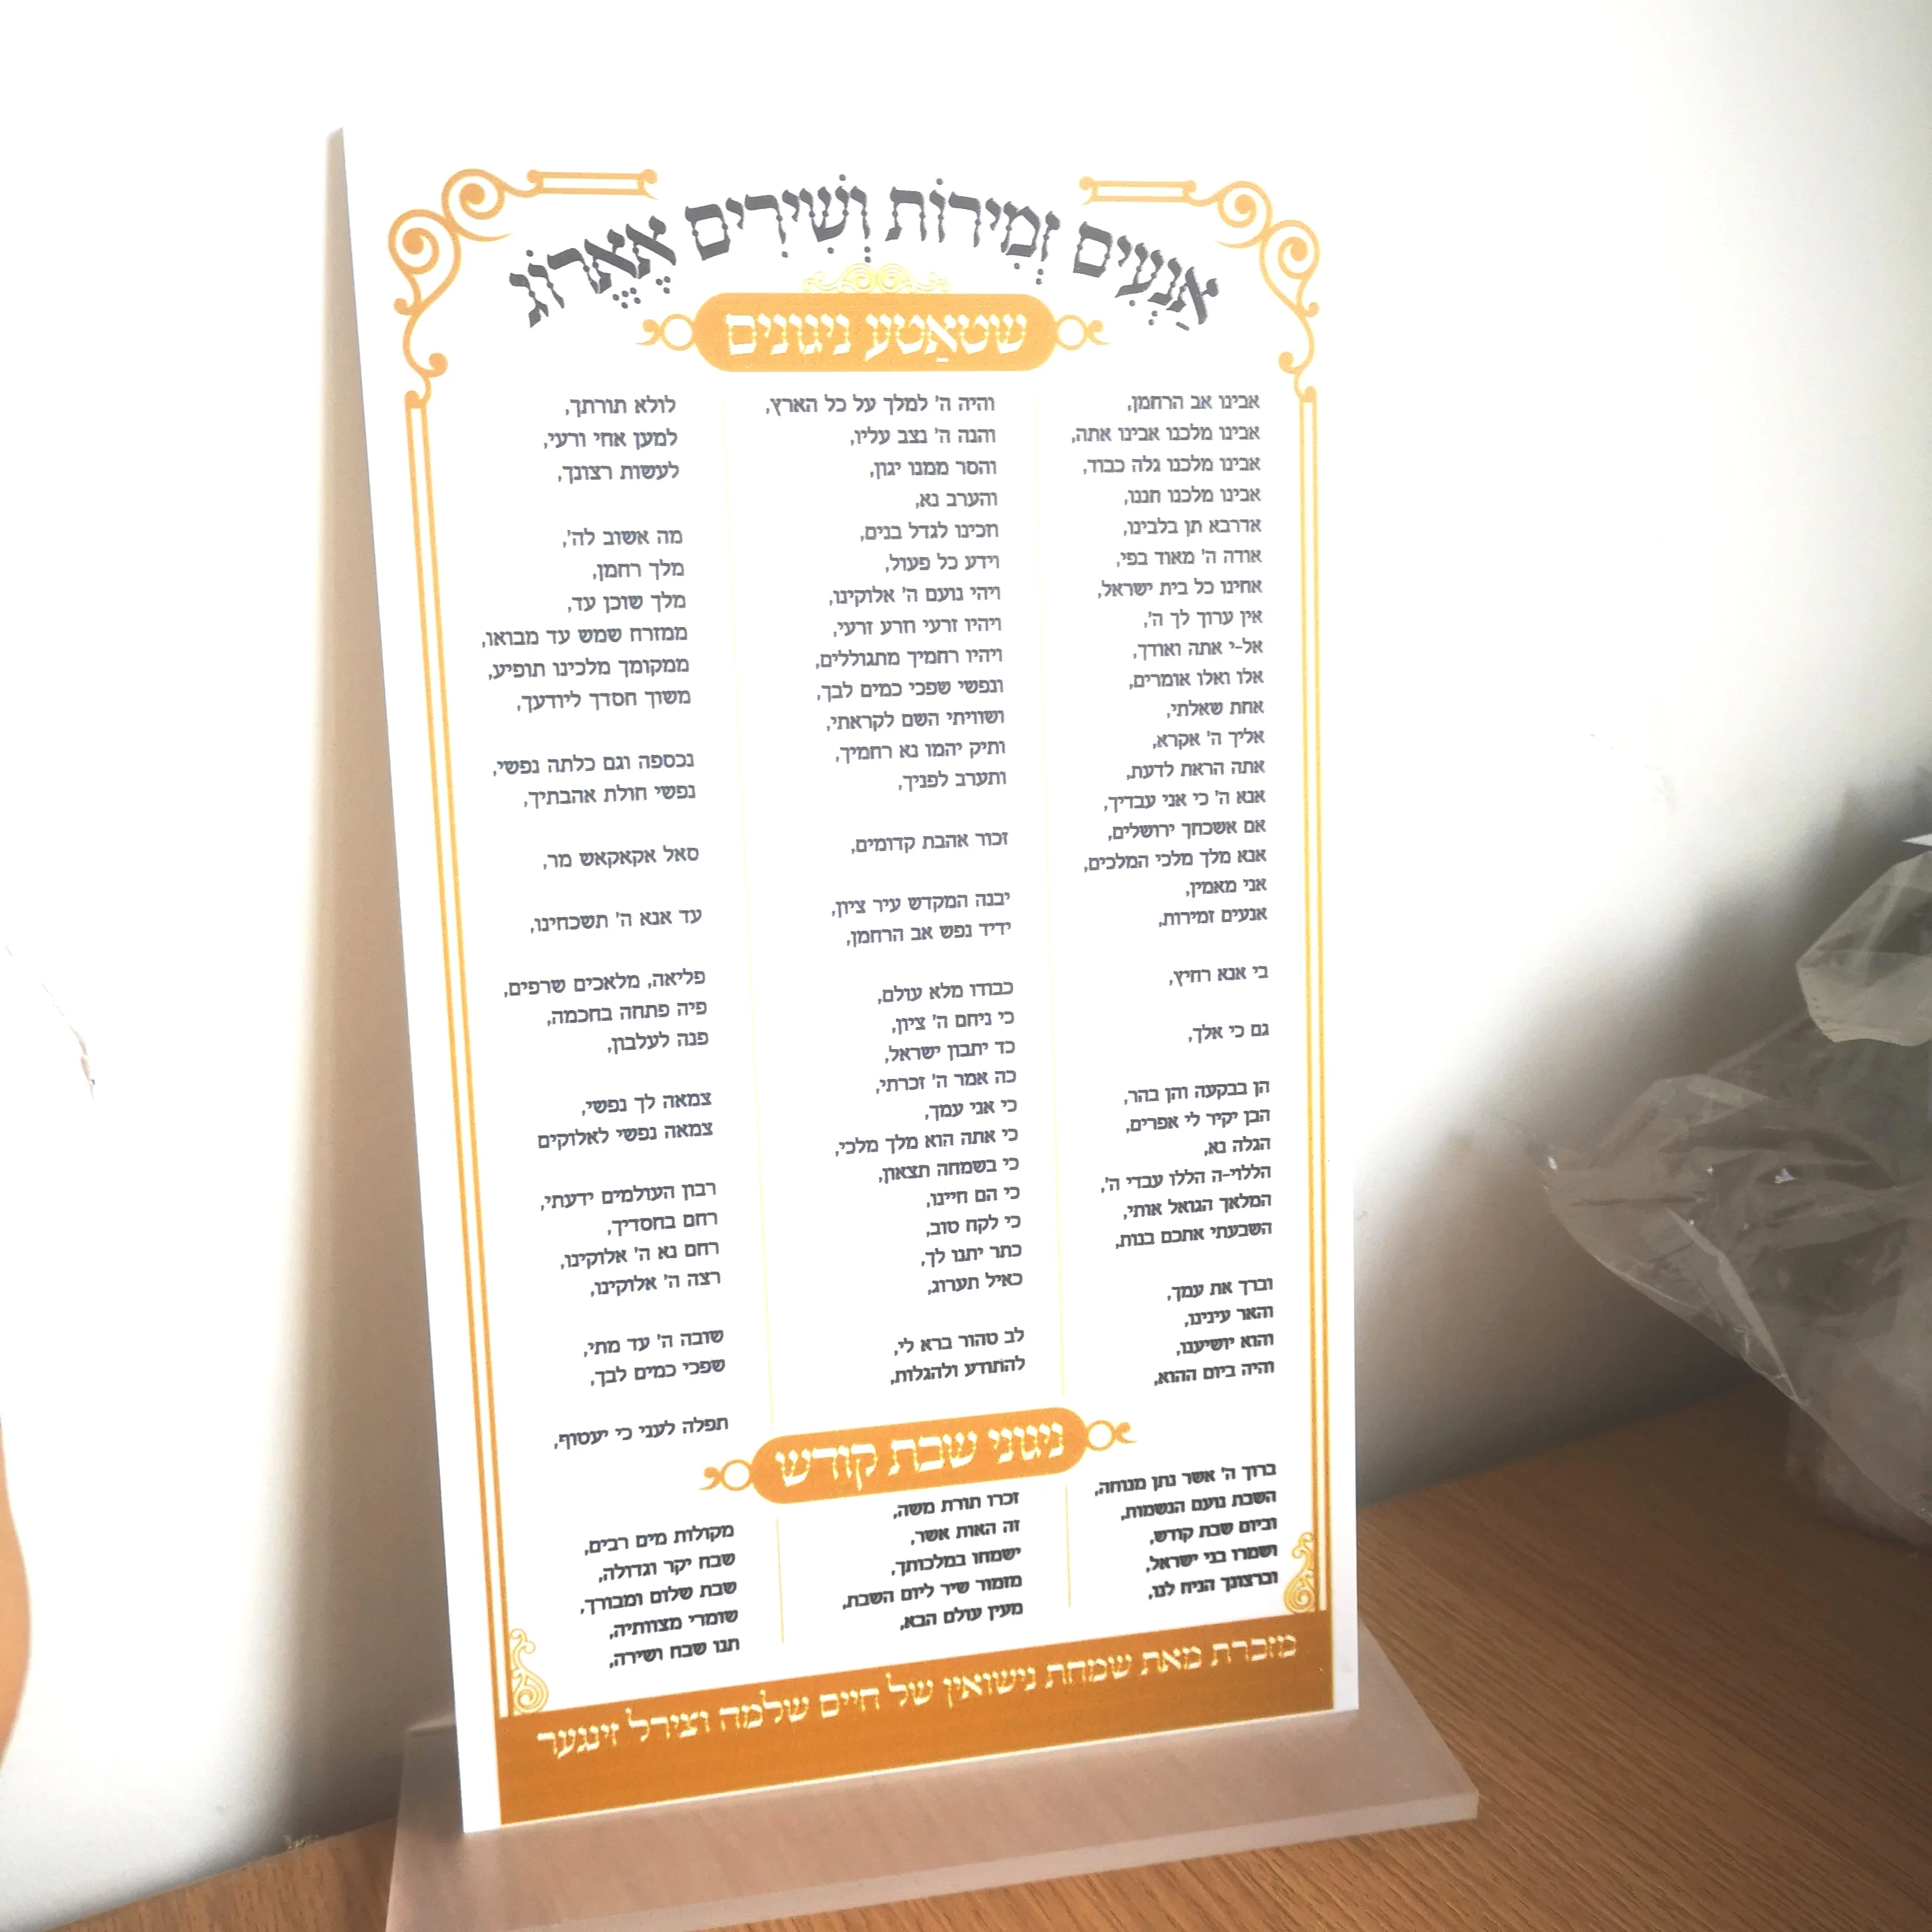 אַנְעִים זְמִירוֹת וְשִׁירִים אֶאֱרוֹג
שטאָטע ניגונים
אבינו אב הרחמן,
אבינו מלכנו אבינו אתה,
אבינו מלכנו גלה כבוד,
אבינו מלכנו חננו,
אדרבא תן בלבינו,
אודה ה' מאוד בפי,
אחינו כל בית ישראל,
אין ערוך לך ה',
אל-י אתה ואודך,
אלו ואלו אומרים,
אחת שאלתי,
אליך ה' אקרא,
אתה הראת לדעת,
אנא ה' כי אני עבדיך,
אם אשכחך ירושלים,
אנא מלך מלכי המלכים,
אני מאמין,
אנעים זמירות,
בי אנא רחיץ,
גם כי אלך,
הן בבקעה והן בהר,
הבן יקיר לי אפרים,
הגלה נא,
הללוי-ה הללו עבדי ה',
המלאך הגואל אותי,
השבעתי אתכם בנות,
וברך את עמך,
והאר עינינו,
והוא יושיענו,
והיה ביום ההוא,
והיה ה' למלך על כל הארץ,
והנה ה' נצב עליו,
והסר ממנו יגון,
והערב נא,
וזכינו לגדל בנים,
וידע כל פעול,
ויהי נועם ה' אלוקינו,
ויהיו זרעי וזרע זרעי,
ויהיו רחמיך מתגוללים,
ונפשי שפכי כמים לבך,
ושוויתי השם לקראתי,
ותיק יהמו נא רחמיך,
ותערב לפניך,
זכור אהבת קדומים,
יבנה המקדש עיר ציון,
ידיד נפש אב הרחמן,
כבודו מלא עולם,
כי ניחם ה' ציון,
כד יתבון ישראל,
כה אמר ה' זכרתי,
כי אני עמך,
כי אתה הוא מלך מלכי,
כי בשמחה תצאון,
כי הם חיינו,
כי לקח טוב,
כתר יתנו לך,
כאיל תערוג,
לב טהור ברא לי,
להתודע ולהגלות,
לולא תורתך,
למען אחי ורעי,
לעשות רצונך,
מה אשוב לה',
מלך רחמן,
מלך שוכן עד,
ממזרח שמש עד מבואו,
ממקומך מלכינו תופיע,
משוך חסדך ליודעך,
נכספה וגם כלתה נפשי,
נפשי חולת אהבתיך,
סאל אקאקאש מר,
עד אנא ה' תשכחינו,
פליאה, מלאכים שרפים,
פיה פתחה בחכמה,
פנה לעלבון,
צמאה לך נפשי,
צמאה נפשי לאלוקים
רבון העולמים ידעתי,
רחם בחסדיך,
רחם נא ה' אלוקינו,
רצה ה' אלוקינו,
שובה ה' עד מתי,
שפכי כמים לבך,
תפלה לעני כי יעטוף,
ניגוני שבת קודש
ברוך ה' אשר נתן מנוחה,
השבת נועם הנשמות,
וביום שבת קודש,
ושמרו בני ישראל,
וברצונך הניח לנו,
זכרו תורת משה,
זה האות אשר,
ישמחו במלכותך,
מזמור שיר ליום השבת,
מעין עולם הבא,
מקולות מים רבים,
שבח יקר וגדולה,
שבת שלום ומבורך,
שומרי מצוותיה,
תנו שבח ושירה,
מזכרת מאת שמחת נישואין של חיים שלמה וצירל זינגער